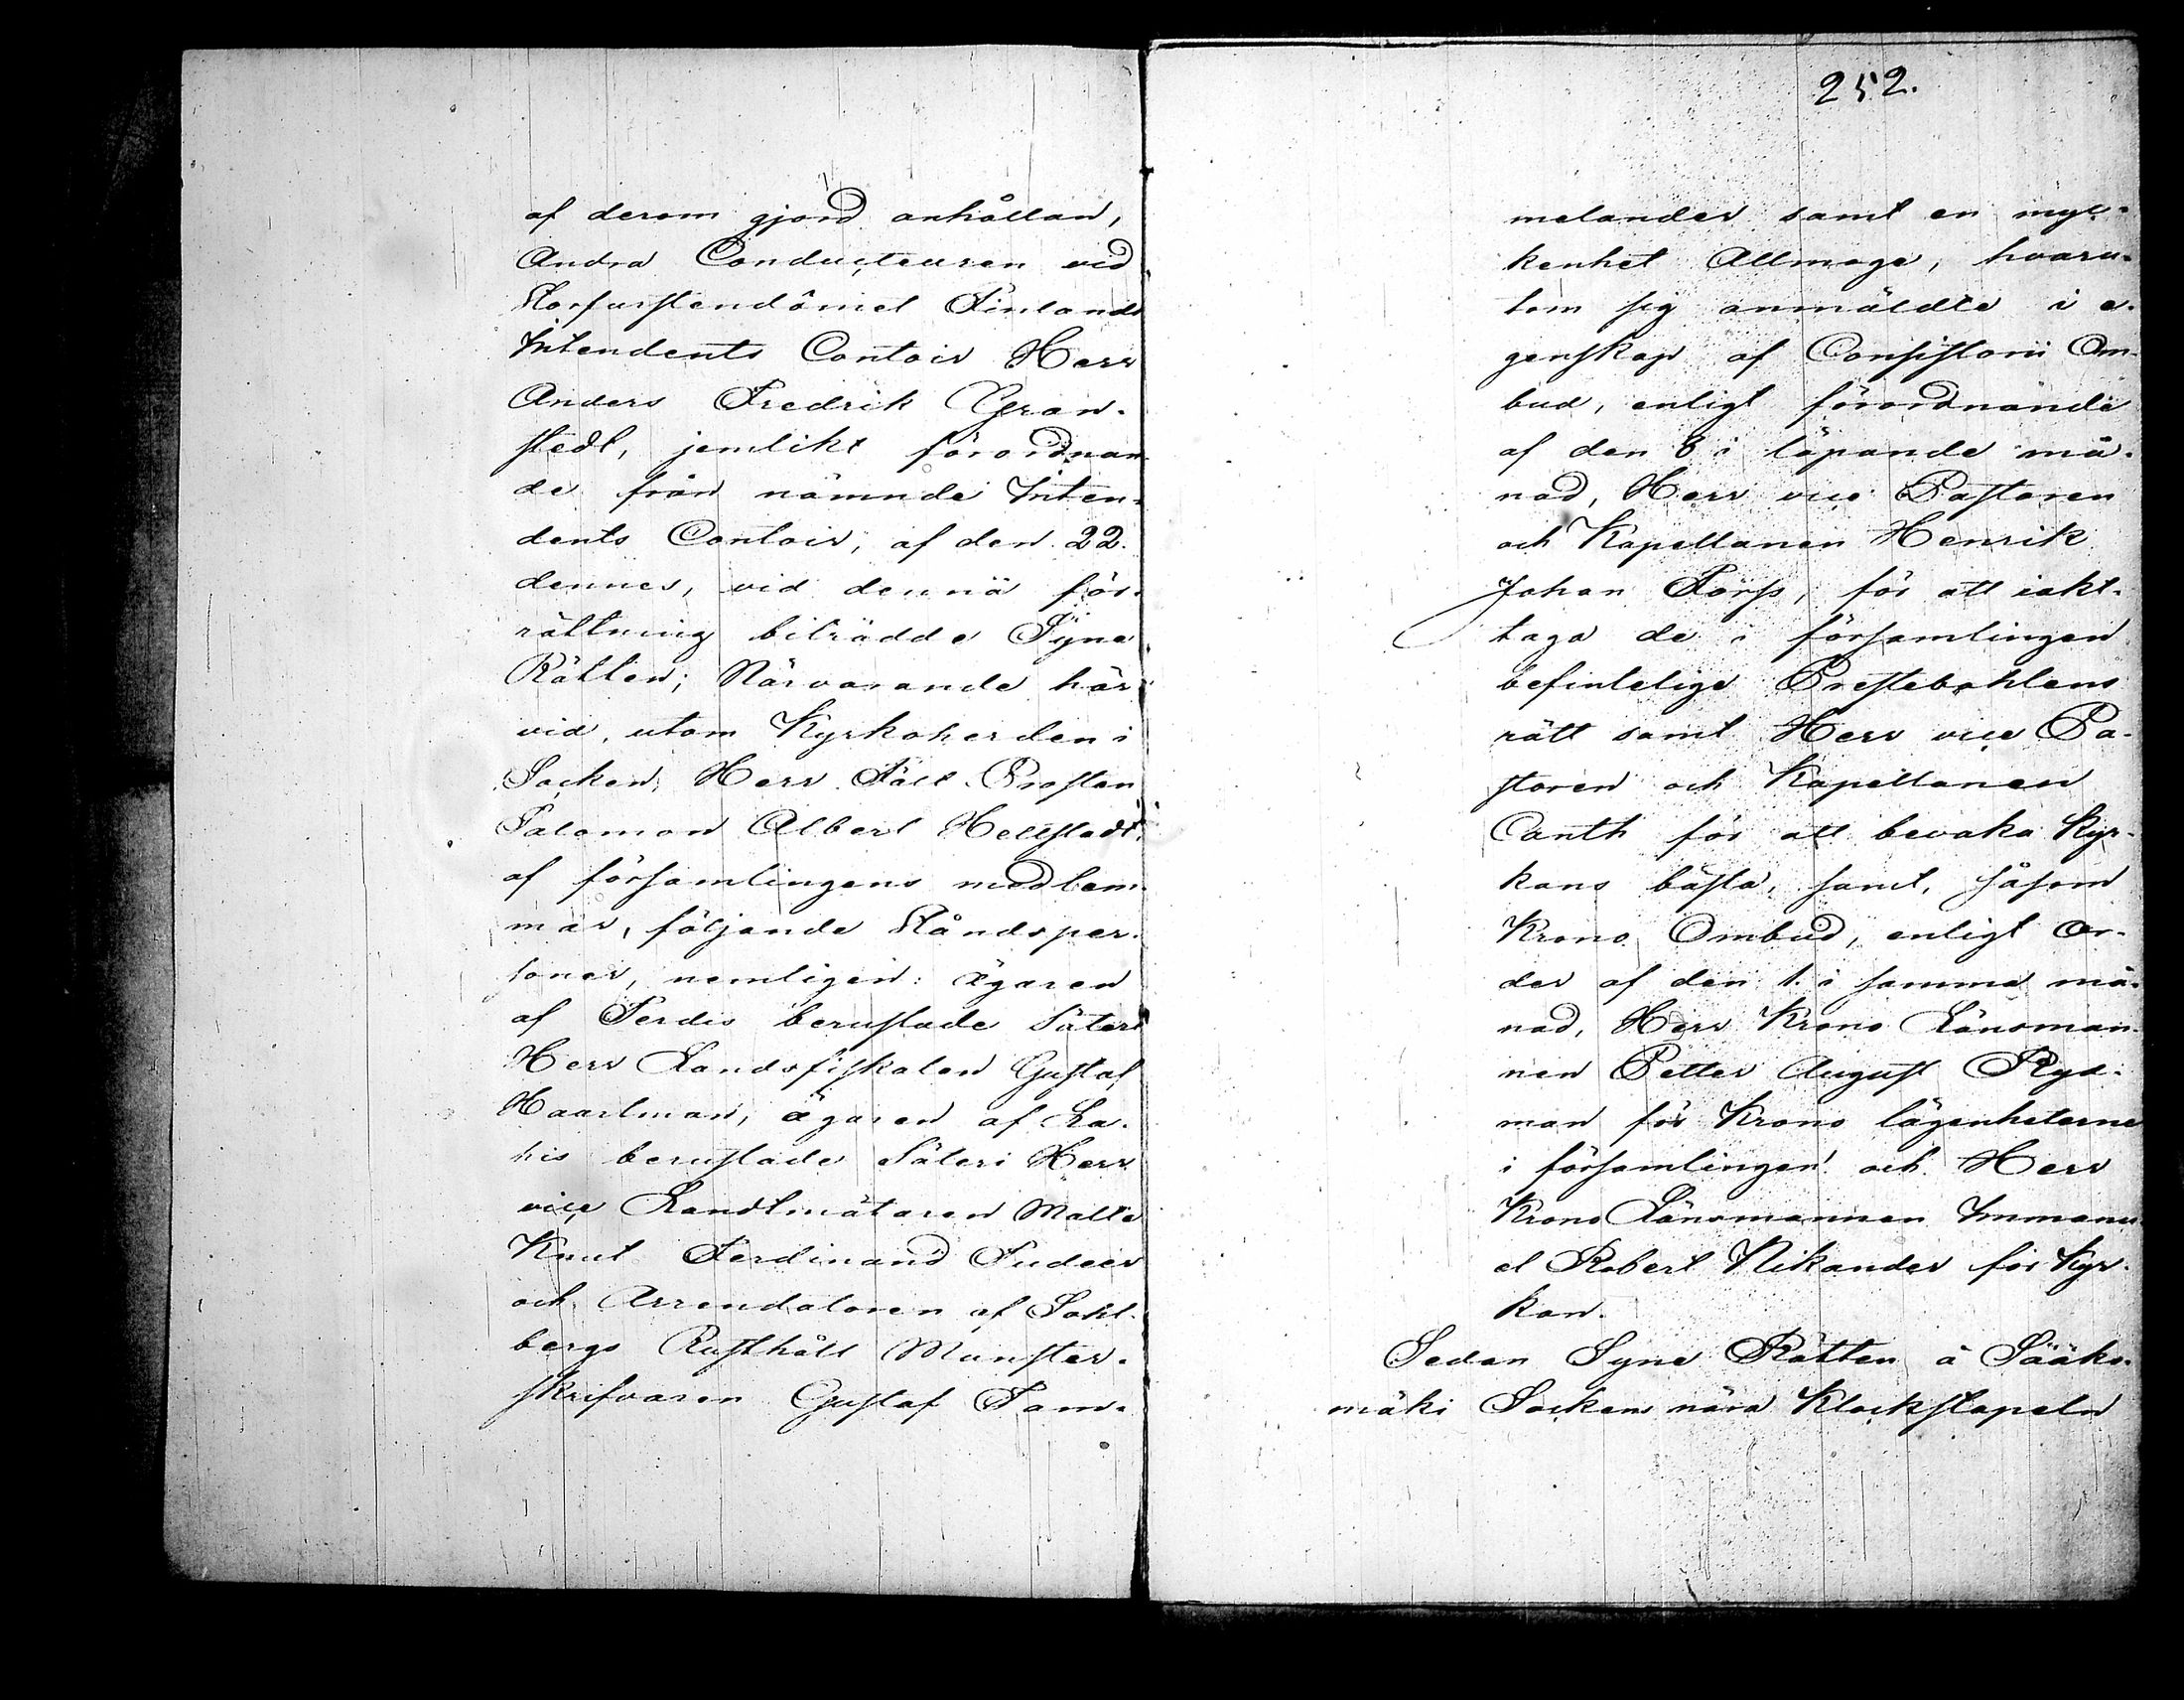 af derom gjord anhållan,
Andra Conducteuren vid
Storfurstendömet Finlands
Intendents Contoir Herr
Anders Fredrik Gran-
stedt, jemlikt förordnan-
de från nämnde Inten-
dents Contoir, af den 22.
dennes, vid denna för-
rättning biträdde Syne
Rätten; Närvarande här
vid, utom Kyrkoherden i
Socken, Herr Fält Prosten
Salomon Albert Hellstadt,
af församlingens medlem-
mar, följande Ståndsper-
soner, nemligen: ägaren
af Ferdis berustade Säteri
Herr Landsfiskalen Gustaf
Haartman, ägaren af La-
his berustade Säteri Herr
vice Landtmätaren Malte
Knut Ferdinand Judeer
och Arrendatoren af Sahl-
bergs Rusthåll Munster-
skrifvaren Gustaf Sam-
252.
melander samt en myc-
kenhet Allmoge, hvaru-
tom sig anmäldte i e-
genskap af Consistorii Om-
bud, enligt förordnande
af den 8 i löpande må-
nad, Herr vice Pastoren
och Kapellanen Henrik
Johan Forss, för att iakt-
taga de i församlingen
befintelige Prestebohlens
rätt samt Herr vice Pa-
storen och Kapellanen
Canth för att bevaka Kyr-
kans bästa, samt, såsom
Krono Ombud, enligt Or-
der af den 1. i samma må-
nad, Herr Krono Länsman-
nen Petter August Ryd-
man för Krono lägenheterne
i församlingen och Herr
Krono Länsmannen Immanu-
el Robert Nikander för Kyr-
kan.
Sedan Syne Rätten å Sääks-
mäki Socken nära Klockstapeln